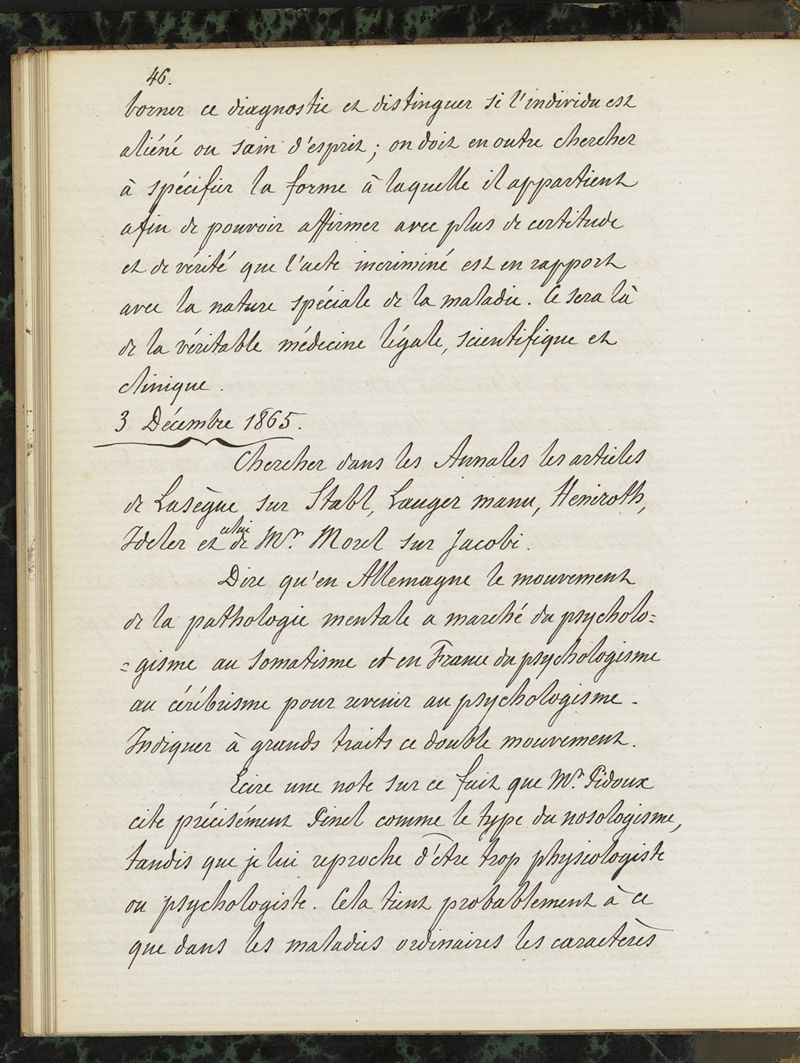 46.
borner ce diagnostic et distinguer si l'individu est
aliéné ou sain d'esprit ; on doit en outre chercher
à spécifier la forme à laquelle il appartient
afin de pouvoir affirmer avec plus de certitude
et de vérité que l'acte incriminé est en rapport
avec la nature spéciale de la maladie. Ce sera là
de la véritable médecine légale, scientifique et
clinique.
3 Décembre 1865.
Chercher dans les Annales les articles
de Lasègue sur Stahl, Langer mann, Heniroth,
Ideler et celui de Mr. Morel sur Jacobi.
Dire qu'en Allemagne le mouvement
de la pathologie mentale a marché du psycholo=
=gisme au somatisme et en France du psychologisme
au cérébrisme pour revenir au psychologisme.
Indiquer à grands traits ce double mouvement.
Ecire une note sur ce fait que Mr. Pidoux
cite précisément Pinel comme le type du nosologisme,
tandis que je lui reproche d'être trop physiologiste
ou psychologiste. Cela tient probablement à ce
que dans les maladies ordinaires les caractères